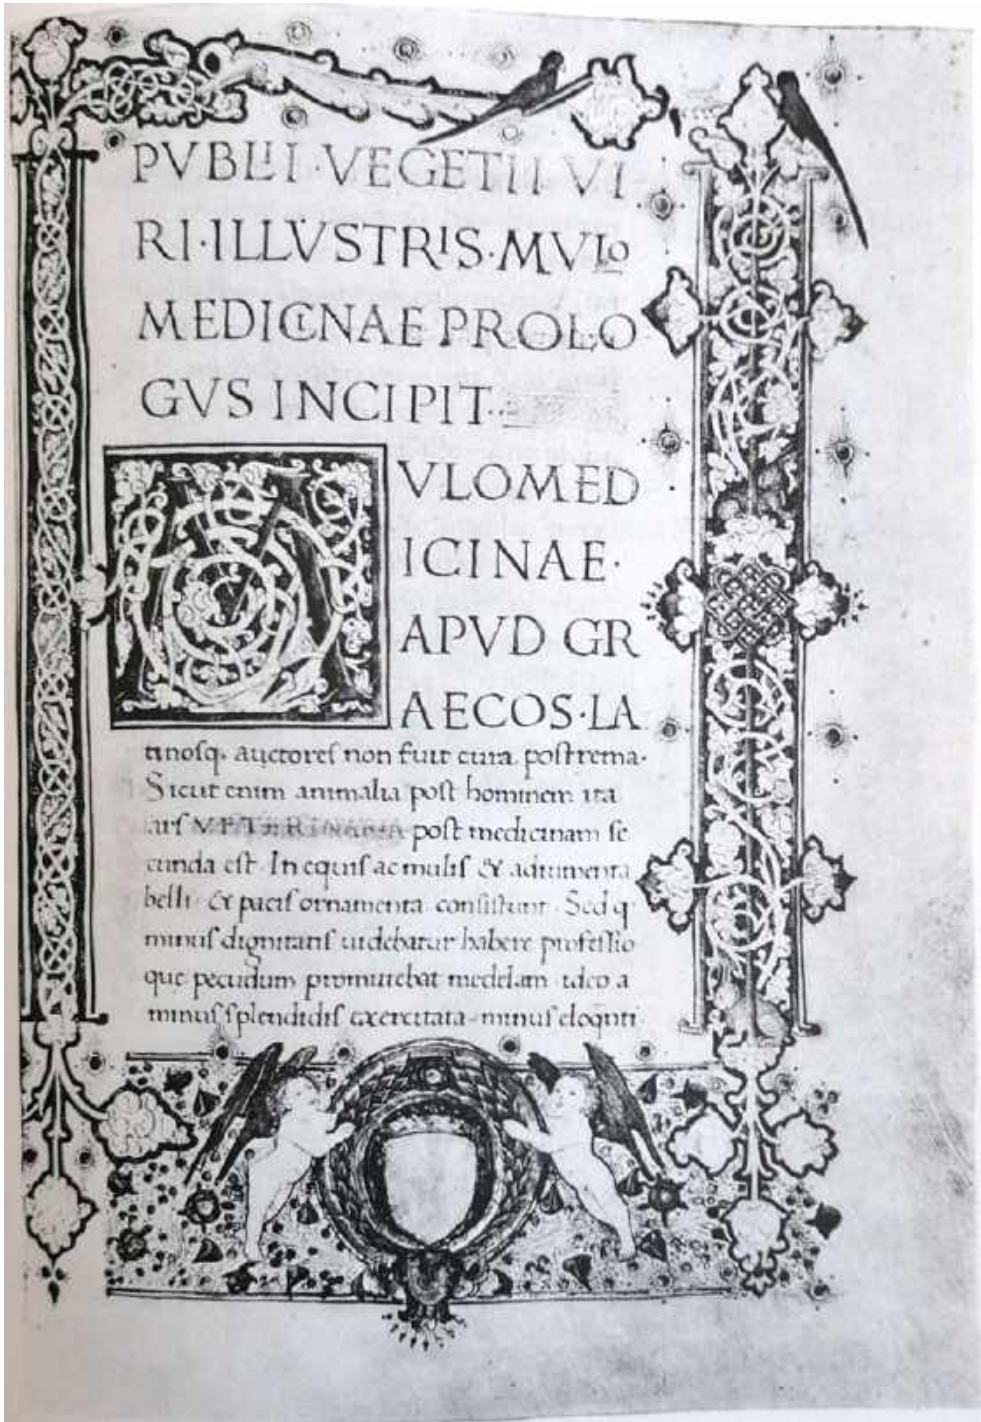 PVBLII·VEGETII·VI
RI·ILLVSTRIS·MVLO
MEDICINAE PROLO
GVS INCIPIT·
MVLOMED
ICINAE·
APVD GR
AECOS·LA
tinosq· auctores non fuit cura postrema·
Sicut enim animalia post hominem ita
ars VETERINARIA post medicinam se
cunda est· In equis ac mulis & adiumenta
belli· & pacis ornamenta consistunt· Sed q
minus dignitatis uidebatur habere professio
quę pecudum promittebat medelam· ideo a
minus splendidis exercitata· minus eloqnti